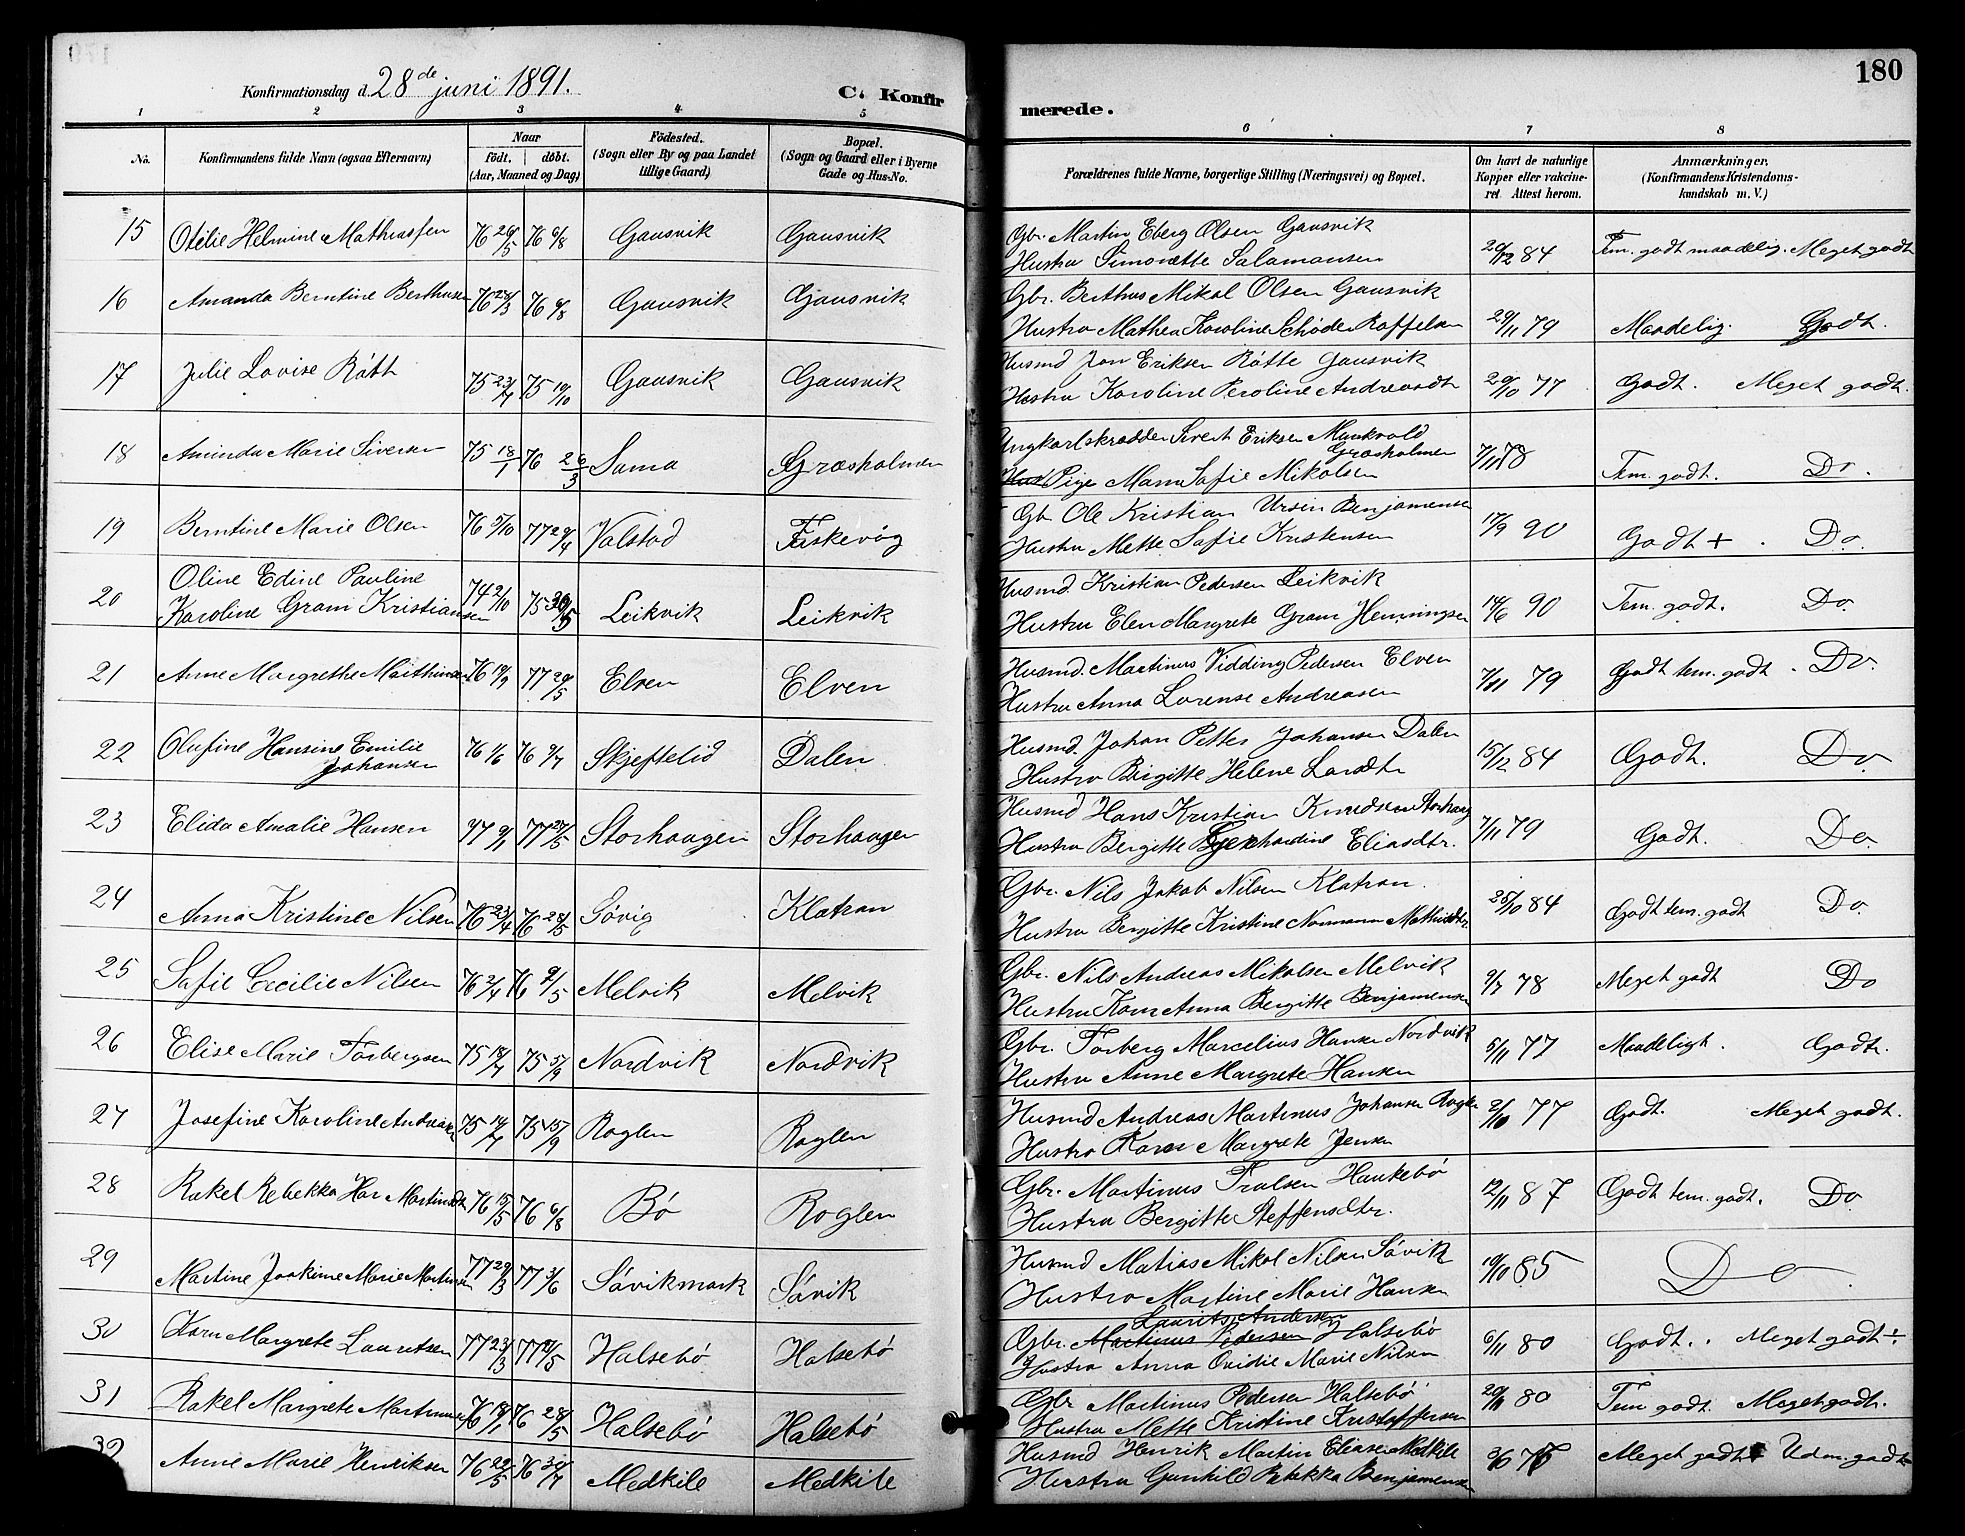 Konfirmationsdag d. 28de juni 1891.
C. Konfirmerede.
180
1 2 3 4 5 6 7 8
No.
Konfirmandens fulde Navn (ogsaa Efternavn)
Naar
födt. döbt.
(Aar, Maaned og Dag)
Födested.
(Sogn eller By og paa Landet
tillige Gaard)
Bopæl.
(Sogn og Gaard eller i Byerne
Gade og Hus-No.
Forældrenes fulde Navne, borgerlige Stilling (Næringsvei) og Bopæl.
Om havt de naturlige
Kopper eller vakcine-
ret Attest herom.
Anmærkninger.
(Konfirmandens Kristendoms-
kundskab m. V.)
15 Otilie Helmine Mathiassen 76 26/5 76 6/8 Gausvik Gausvik Gbr. Martin Eberg Olsen Gausvik
Hustru Simonette Salamonsen 20/12 84 Tem. godt maadelig. Meget godt
16 Amanda Berntine Berthusen 76 28/3 76 6/8 Gausvik Gausvik Gbr. Berthus Mikal Olsen Gausvik
Hustru Mathea Karoline Schöder Roffelsen 29/11 79 Maadelig. Godt.
17 Julie Lovise Rátt 75 23/7 75 19/10 Gausvik Gausvik Husmd Jon Eriksen Råtte Gausvik
Hustru Karoline Peroline Andreasdt 20/10 77 Godt. Meget godt.
18 Aminda Marie Siversen 75 18/1 76 26/3 Sama Græsholmen Ungkarlskrædder Sivert Eriksen Maukvold
Græsholmen
Pige Maren Safie Mikalsen 7/11 78 Tem. godt. Do.
19 Berntine Marie Olsen 76 5/10 77 29/4 Valstad Fiskevög Gbr Ole Kristian Ursin Benjamensen
Hustru Mette Safie Kristensen 17/9 90 Godt + . Do.
20 Oline Edine Pauline
Karoline Gram Kristiansen 74 2/10 75 30/5 Leikvik Leikvik Husmd. Kristian Pedersen Leikvik
Hustru Elen Margrete Gram Henningsen 14/6 90 Tem. godt. Do.
21 Anne Margrethe Marthinsen 76 19/9 77 29/5 Elven Elven Husmd. Martinus Vidding Pedersen Elven
Hustru Anna Lorense Andreasen 7/11 79 Godt tem. godt . Do.
22 Olufine Hansine Emilie
Johansen 76 1/6 76 9/7 Skjeftelid Dalen Husmd. Johan Petter Johansen Dalen
Hustru Birgitte Helene Larsdtr 15/12 84 Godt. Do.
23 Elida Amalie Hansen 77 9/1 77 27/5 Storhaagen Storhaagen Husmd Hans Kristian Knudsen Storhaag
Hustru Bergitte Gjerhardine Eliasdtr. 7/11 79 Godt. Do.
24 Anna Kristine Nilsen 76 23/4 76 28/5 Sövig Klatran Gbr. Nils Jakob Nilsen Klatran.
Hustru Bergitte Kristine Normann Mathisdtr. 25/10 84 Godt tem. godt Do.
25 Safie Cecilie Nilsen 76 2/4 76 9/5 Melvik Melvik Gbr. Nils Andreas Mikalsen Melvik
Hustru Karen Anna Bergitte Benjamensen 9/7 78 Meget godt Do
26 Elise Marie Torbergsen 75 18/7 75 5/9 Nordvik Nordvik Gbr. Torberg Marcelius Hansen Nordvik
Hustru Anne Margrete Hansen 5/11 77 Maadeligt. Godt.
27 Josefine Karoline Andreasen 75 14/7 75 15/9 Roglen Roglen Husmd Andreas Martinus Johansen Roglen
Hustru Karen Margrete Jensen 2/10 77 Godt. Meget godt.
28 Rakel Rebekka Har Martinsdt 76 15/5 76 6/8 Bö Roglen Gbr. Martinus Tralsen Haukebö
Hustru Bergitte Steffensdtr. 12/11 87 Godt tem. godt. Do.
29 Martine Joakime Marie Martinsen 77 29/3 77 3/6 Sövikmark Sövik Husmd Matias Mikal Nilsen Sövik
Hustru Martine Marie Hansen 19/10 85 Do.
30 Karen Margrete Lauritsen 77 23/3 77 21/5 Halsebö Halsebö Laurits Andersen
Gbr. Martinus Pedersen Halsebö
Hustru Anna Ovidie Marie Nilsen 6/11 80 Godt. . Meget godt ÷
31 Rakel Margrete Martinusen 76 18/1 76 28/5 Halsebö Halsebö Gbr Martinus Pedersen Halsebö
Hustru Mette Kristine Kristoffersen 20/11 80 Tem godt Meget godt.
32 Anne Marie Henriksen 76 22/5 76 30/7 Medkile Medkile Husmd Henrik Martin Eliasen Medkile
Hustru Gunhild Rebekka Benjamensen Meget godt Udm. godt